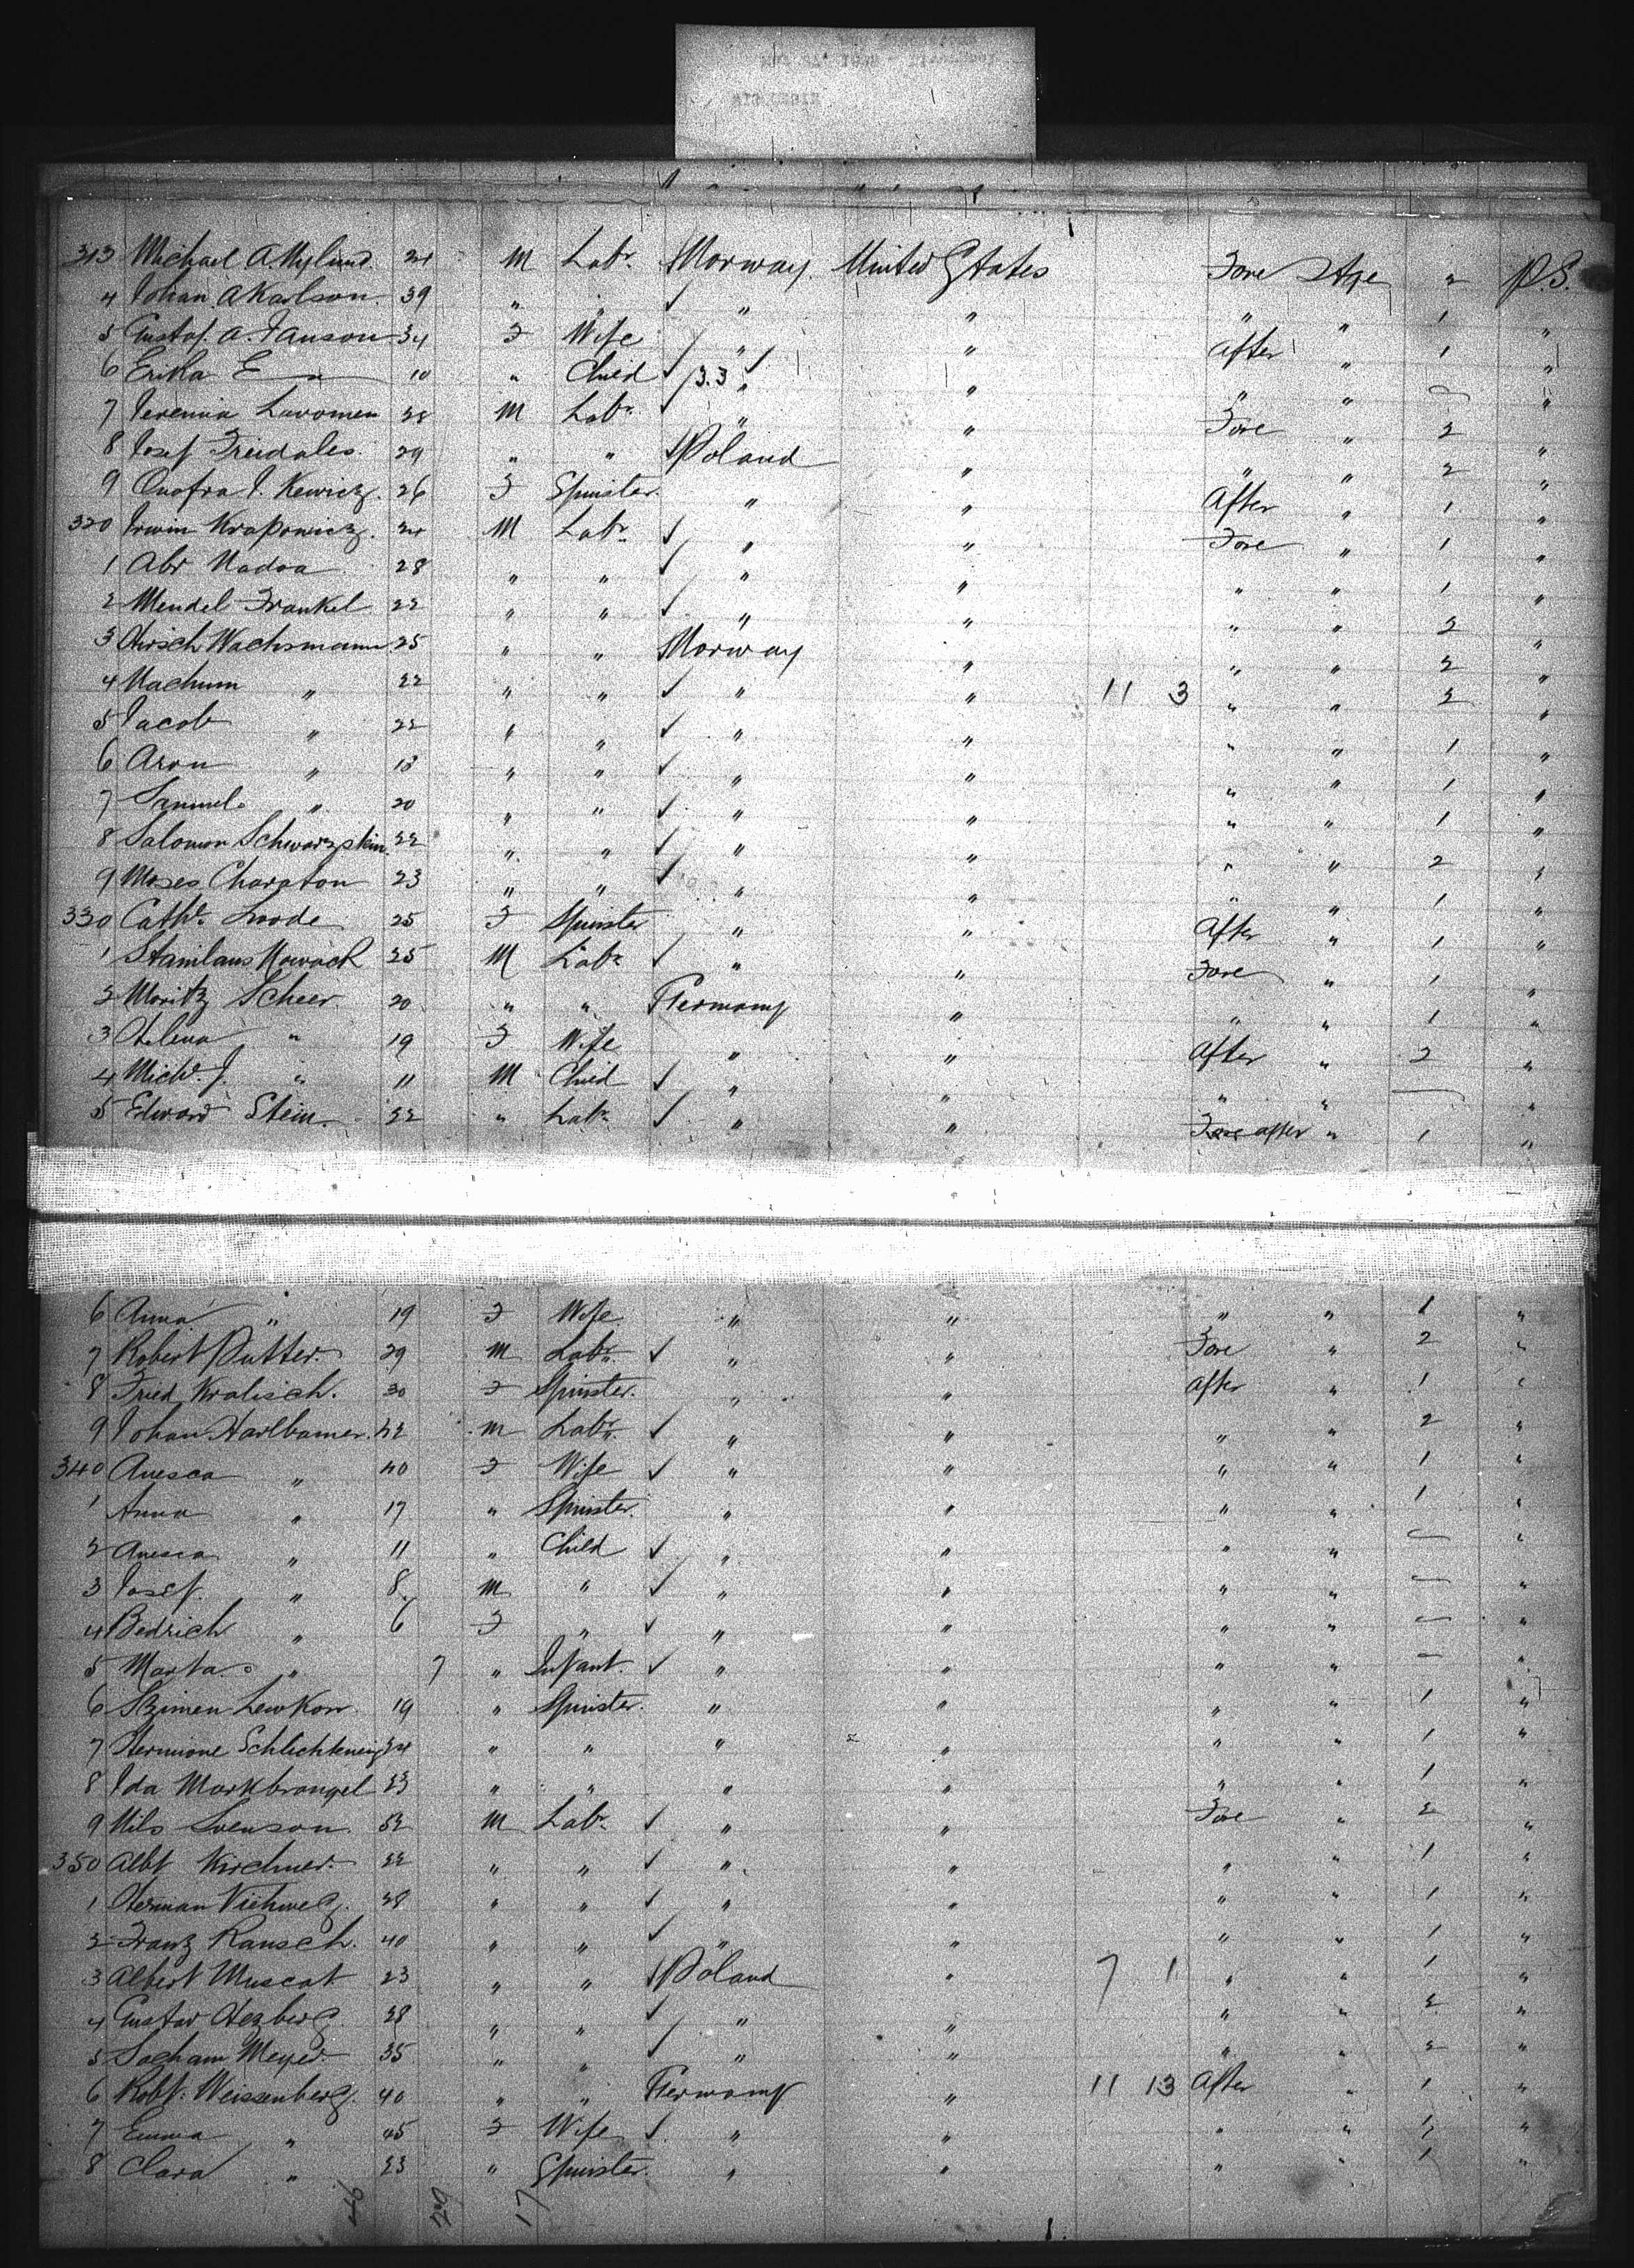 313 Michael A. Nylund. 24 M Labr. Norway. United States Fore Stge 2 P.S.
4 Johan. A Karlson. 39 " " ✓ " " " " 1 "
5 Gustaf. A. Janson 34 F Wife " " After " 1 "
6 Erika E " 10 " Child ✓ 3.3 " " " " — "
7 Jeremia Luvomen 28 M Labr ✓ " " Fore " 2 "
8 Josef Freidales. 29 " " ✓ Poland " " " 2 "
9 Onofra J. Kewicz. 26 F Spinster. " " After " 1 "
320 Irwin Kraponicz. 24 M Labr. ✓ " " Fore " 1 "
1 Abr Nadoa 28 " " ✓ " " " " 1 "
2 Mendel Frankel 22 " " ✓ " " " " 2 "
3 Hirsch Wachsmann 25 " " Norway " " " 2 "
4 Nachum " 22 " " ✓ " " 11 3 " " 2 "
5 Jacob " 22 " " ✓ " " " " 1 "
6 Aron " 18 " " ✓ " " " " 1 "
7 Samuel. " 20 " " ✓ " " " " 1 "
8 Salomon Schwarzskin. 22 " " ✓ " " " " 2 "
9 Moses Charaton 23 " " ✓ " " " " 1 "
330 Cathe. Loode 25 F Spinster " " After " 1 "
1 Stanilaus Nowack 25 M Labr ✓ " " Fore " 1 "
2 Moritz Scheer. 20 " " Germany " " " 1 "
3 Helena " 19 F Wife " " After " 2 "
4 Michl. J. " 11 M Child ✓ " " " " — "
5 Edward Stein. 22 " Labr. ✓ " " Fore after " 1 "
6 Anna " 19 F Wife. " " " " 1 "
7 Robert Putter. 29 M Labr. ✓ " " Fore " 2 "
8 Fried Kralisch. 30 F Spinster. " " After " 1 "
9 Johan Harlbamer. 42 M Labr. ✓ " " " " 2 "
340 Anesca " 40 F Wife ✓ " " " " 1 "
1 Anna " 17 " Spinster. " " " " 1 "
2 Anesca " 11 " Child ✓ " " " " — "
3 Josef. " 8 M " ✓ " " " " — "
4 Bedrich " 6 F " ✓ " " " " — "
5 Marta. " 7 " Infant. ✓ " " " " — "
6 Szimen Lewkow. 19 " Spinster. " " " " 1 "
7 Hermione Schlichteneig 24 " " " " " " 1 "
8 Ida Markbrangel 23 " " " " " " 1 "
9 Nils Svenson. 52 M Labr. ✓ " " Fore " 2 "
350 Albt Kirchner. 22 " " ✓ " " " " 1 "
1 Herman Viehweg. 28 " " ✓ " " " " 1 "
2 Franz Rausch. 40 " " ✓ " " " " 1 "
3 Albert Muscat 23 " " ✓ Poland " 7 1 " " 1 "
4 Gustav Hezberg. 28 " " ✓ " " " " 2 "
5 Socham Meyer. 35 " " ✓ " " " " 2 "
6 Robt. Weissenberg. 40 " " Germany " 11 13 After " 1 "
7 Emma " 45 F Wife ✓ " " " " 1 "
8 Clara " 23 " Spinster. " " " " 1 "
17